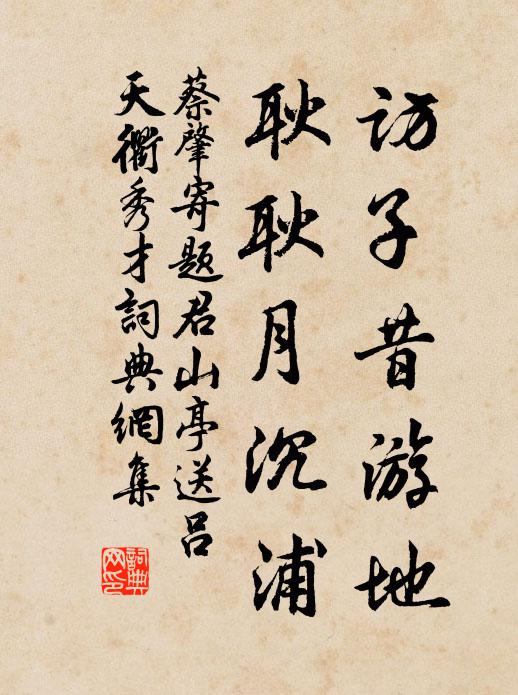 访子昔游地
耿耿月沉浦
蔡肇寄题君山亭送吕
天衢秀才詞典網集
詞典网印